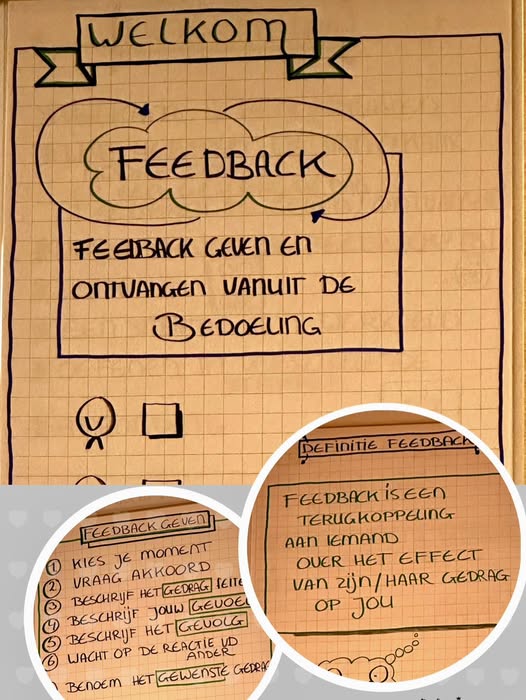 WELKOM
FEEDBACK
FEEDBACK GEVEN EN
ONTVANGEN VANUIT DE
BEDOELING
DEFINITIE FEEDBACK
FEEDBACK IS EEN
TERUGKOPPELING
AAN IEMAND
OVER HET EFFECT
VAN ZIJN/HAAR GEDRAG
OP JOU
FEEDBACK GEVEN
1 KIES JE MOMENT
2 VRAAG AKKOORD
3 BESCHRIJF HET GEDRAG FEITE
4 BESCHRIJF JOUW GEVOEL
5 BESCHRIJF HET GEVOLG
6 WACHT OP DE REACTIE VD
ANDER
BENOEM HET GEWENSTE GEDRAG